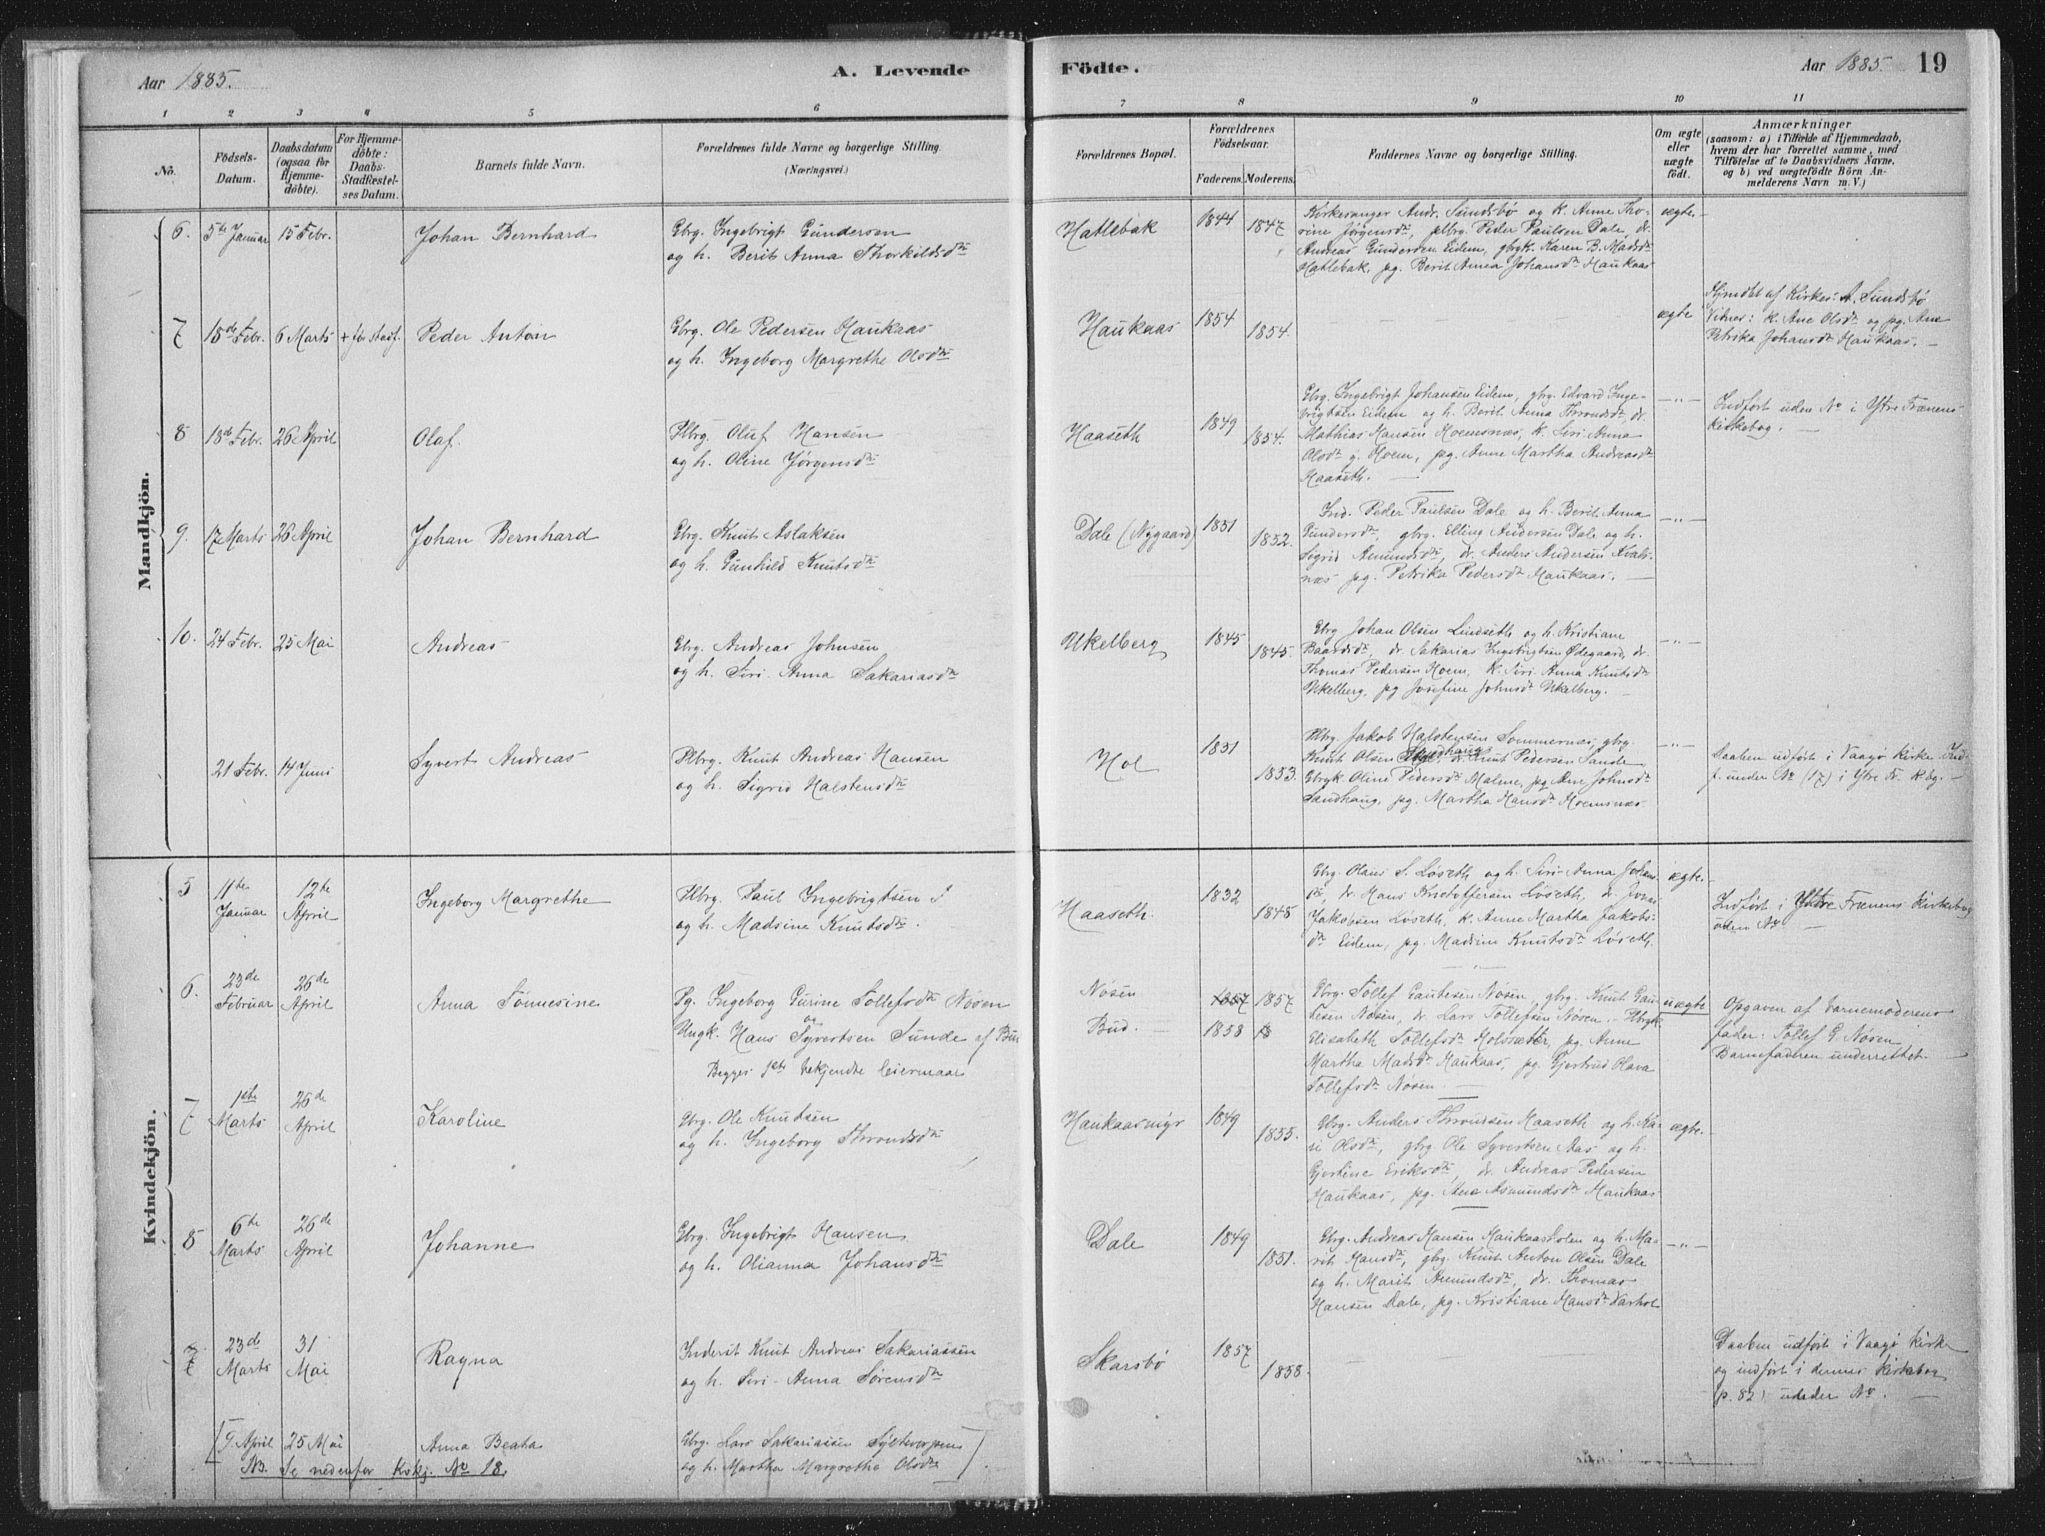 Aar 1885.
A. Levende
Födte.
Aar 1885.
19
1 2 3 4 5 6 7 8 9 10 11
No.
Födsels-
Datum.
Daabsdatum
(ogsaa for
Hjemme-
döbte).
For Hjemme-
döbte:
Daabs-
Stadfæstel-
ses Datum.
Barnets fulde Navn.
Forældrenes fulde Navne og borgerlige Stilling.
(Næringsvei.)
Forældrenes Bopæl.
Forældrenes
Födselsaar.
Faderens. Moderens.
Faddernes Navne og borgerlige Stilling.
Om ægte
eller
uægte
födt.
Anmærkninger
(saasom: a) i Tilfælde af Hjemmedaab,
hvem der har forrettet samme, med
Tilföielse af to Daabsvidners Navne,
og b) ved uægtefödte Börn An-
melderens Navn m. V.)
Mandkjön.
6. 5te Januar 15 Febr. Johan Bernhard
Gbrg. Ingebrigt Gundersen
og h. Berit Anna Thorkildsdtr
Hatlebak 1844 1847
Kirkesanger Andr. Sundsbö og K. Anne Tho-
rine Jörgensdtr, Peder Paulsen Dale, dr.
Andreas Gundersen Eidem, gbrgk. Karen B. Madsdtr
Hatlebak, pg. Berit Anna Johansdtr Haukaas
ægte.
7 18de Febr. 6 Marts + før Stadf. Peder Anton
Gbrg. Ole Pedersen Haukaas
og h. Ingeborg Margrethe Olsdtr
Haukaas 1854 1854.
ægte
Hjmdbt af Kirkes: A. Sundsbö
Vidner: K. Ane Olsdtr og pg. Ane
Petrika Johansdtr Haukaas. —
8 18de Febr. 26 April Olaf.
Hbrg. Oluf Hansen
og h. Oline Jörgensdtr
Haaseth 1849 1854.
Gbrg. Ingebrigt Johansen Eidem, gbrg. Edvard Inge-
brigtsen Eidem og h. Berit Anna Throndsdtr, dr.
Mathias Hansen Hoemsnæs, K. Siri Anna
Olsdtr g. Hoem, pg. Anne Martha Andreasdtr
Haaseth. —
—"—
Indført uden No i Ytre Frænens
Kirkebog. —
9. 17 Marts 26 April Johan Bernhard
Gbrg. Knut Aslaksen
og h. Gunhild Knutsdtr
Dale (Nygaard) 1851 1852.
Ind. Peder Paulsen Dale og h. Berit Anna
Gundersdtr, gbrg. Elling Andersen Dale og h.
Sigrid Amundsdtr, dr. Anders Andersen Kvals-
næs pg. Petrika Pedersdtr Haukaas. —
—"—
10. 24 Febr. 25 Mai Andreas
Gbrg. Andreas Johnsen
og h. Siri Anna Sakariasdtr
Ukelberg 1845 1845.
Gbrg Johan Olsen Lindseth og h. Kristiane
Baardsdtr, dr. Sakarias Ingebrigtsen Ødegaard, dr.
Thomas Pedersen Hoem, K. Siri Anna Knutsdtr
Ukelberg, pg Josefine Johnsdtr Ukelberg. —
—"—
21 Febr. 14 Juni Syvert Andreas
Hbrg. Knut Andreas Hansen
og h. Sigrid Halstensdtr
Hol 1851 1853.
Hbrg. Jakob Halstensen Sommernæs, gbrg.
Knut Olsen Sandhaug, dr. Knut Pedersen Sande
Gbrgk Oline Pedersdtr Malme, pg Ane Johnsdtr
Sandhaug, pg. Martha Hansdtr Hoemsnæs
—"—
Daaben udført i Vaagø Kirke. Ind-
f. under No (17) i Ytre Fr. K.bg. —
Kvindekjön.
5 11te Januar 12te April Ingeborg Margrethe
Hbrg. Paul Ingebrigtsen
og h. Madsine Knutsdtr.
Haaseth 1832 1845
Gbrg. Olaus S. Løseth og h. Siri Anna Johans-
dtr, dr. Hans Kristoffersen Løseth, dr. Jonas
Jakobsen Løseth, K. Anne Martha Jakobs-
dtr Eidem, pg. Madsine Knutsdtr Løseth.
ægte.
Indført i Ytre Frænens Kirkebog
uden No —
6. 23de Februar 26de April Anna Tømmesine
Pg. Ingeborg Gurine Tollefsdtr Nøsen
og
Ungk. Hans Syvertsen Sunde af Bud
Begges 1ste bekjendte leiermaal
Nøsen
Bud. —
1857 1857
1858 18
Gbrg. Tollef Gautesen Nøsen, gbrg. Knut Gau-
tesen Nøsen, dr Lars Tollefsen Nøsen. — Hbrgk
Elisabeth Tollefsdtr Holsæter, pg. Anne
Martha Madsdtr Haukaas, pg. Gjertrud Olava
Tollefsdtr Nøsen. —
uægte
Opgaven af Barnemoderens
fader: Tollef G. Nøsen
Barnefaderen underrettet. —
7 1ste Marts 26de April Karoline
Gbrg. Ole Knutsen
og h. Ingeborg Throndsdtr
Haukaasmyr 1849 1855.
Gbrg. Anders Throndsen Haaseth og h. Ka-
ri Olsdtr, gbrg Ole Syvertsen Aas og h.
Gjertine Eriksdtr, dr. Andreas Pedersen
Haukaas, pg. Ane Asmundsdtr Haukaas
ægte.
8 6te Marts 26de April Johanne
Gbrg. Ingebrigt Hansen
og h. Olianna Johansdtr
Dale 1849 1851.
Gbrg. Andreas Hansen Haukaasholen og h. Ma-
rit Hansdtr, gbrg. Knut Anton Olsen Dale
og h. Marit Amundsdtr, dr. Thomas
Hansen Dale, pg. Kristiane Hansdtr Varhol
—"—
23de Marts 31 Mai Ragna
Inderst Knut Andreas Sakariassen
og h. Siri Anna Sørensdtr
Skarsbö 1857 1858.
Daaben udført i Vaagø Kirke
og indført i dennes Kirkebog
p. 82) under No. —
[7. April 25 Mai Anna Beata
Gbrg. Lars Sakariassen
og h. Martha Margretha Olsdtr ].
NB. Se nedenfor Kvkj. No 18.